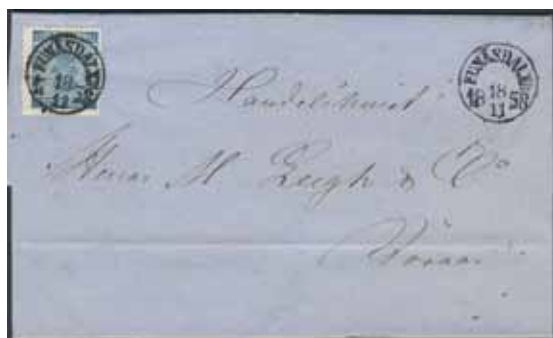 FUNÄSDALEN
18
11
FUNÄSDALEN
18 18 58
11
Handelshuset
Herrar M Leigh & Co